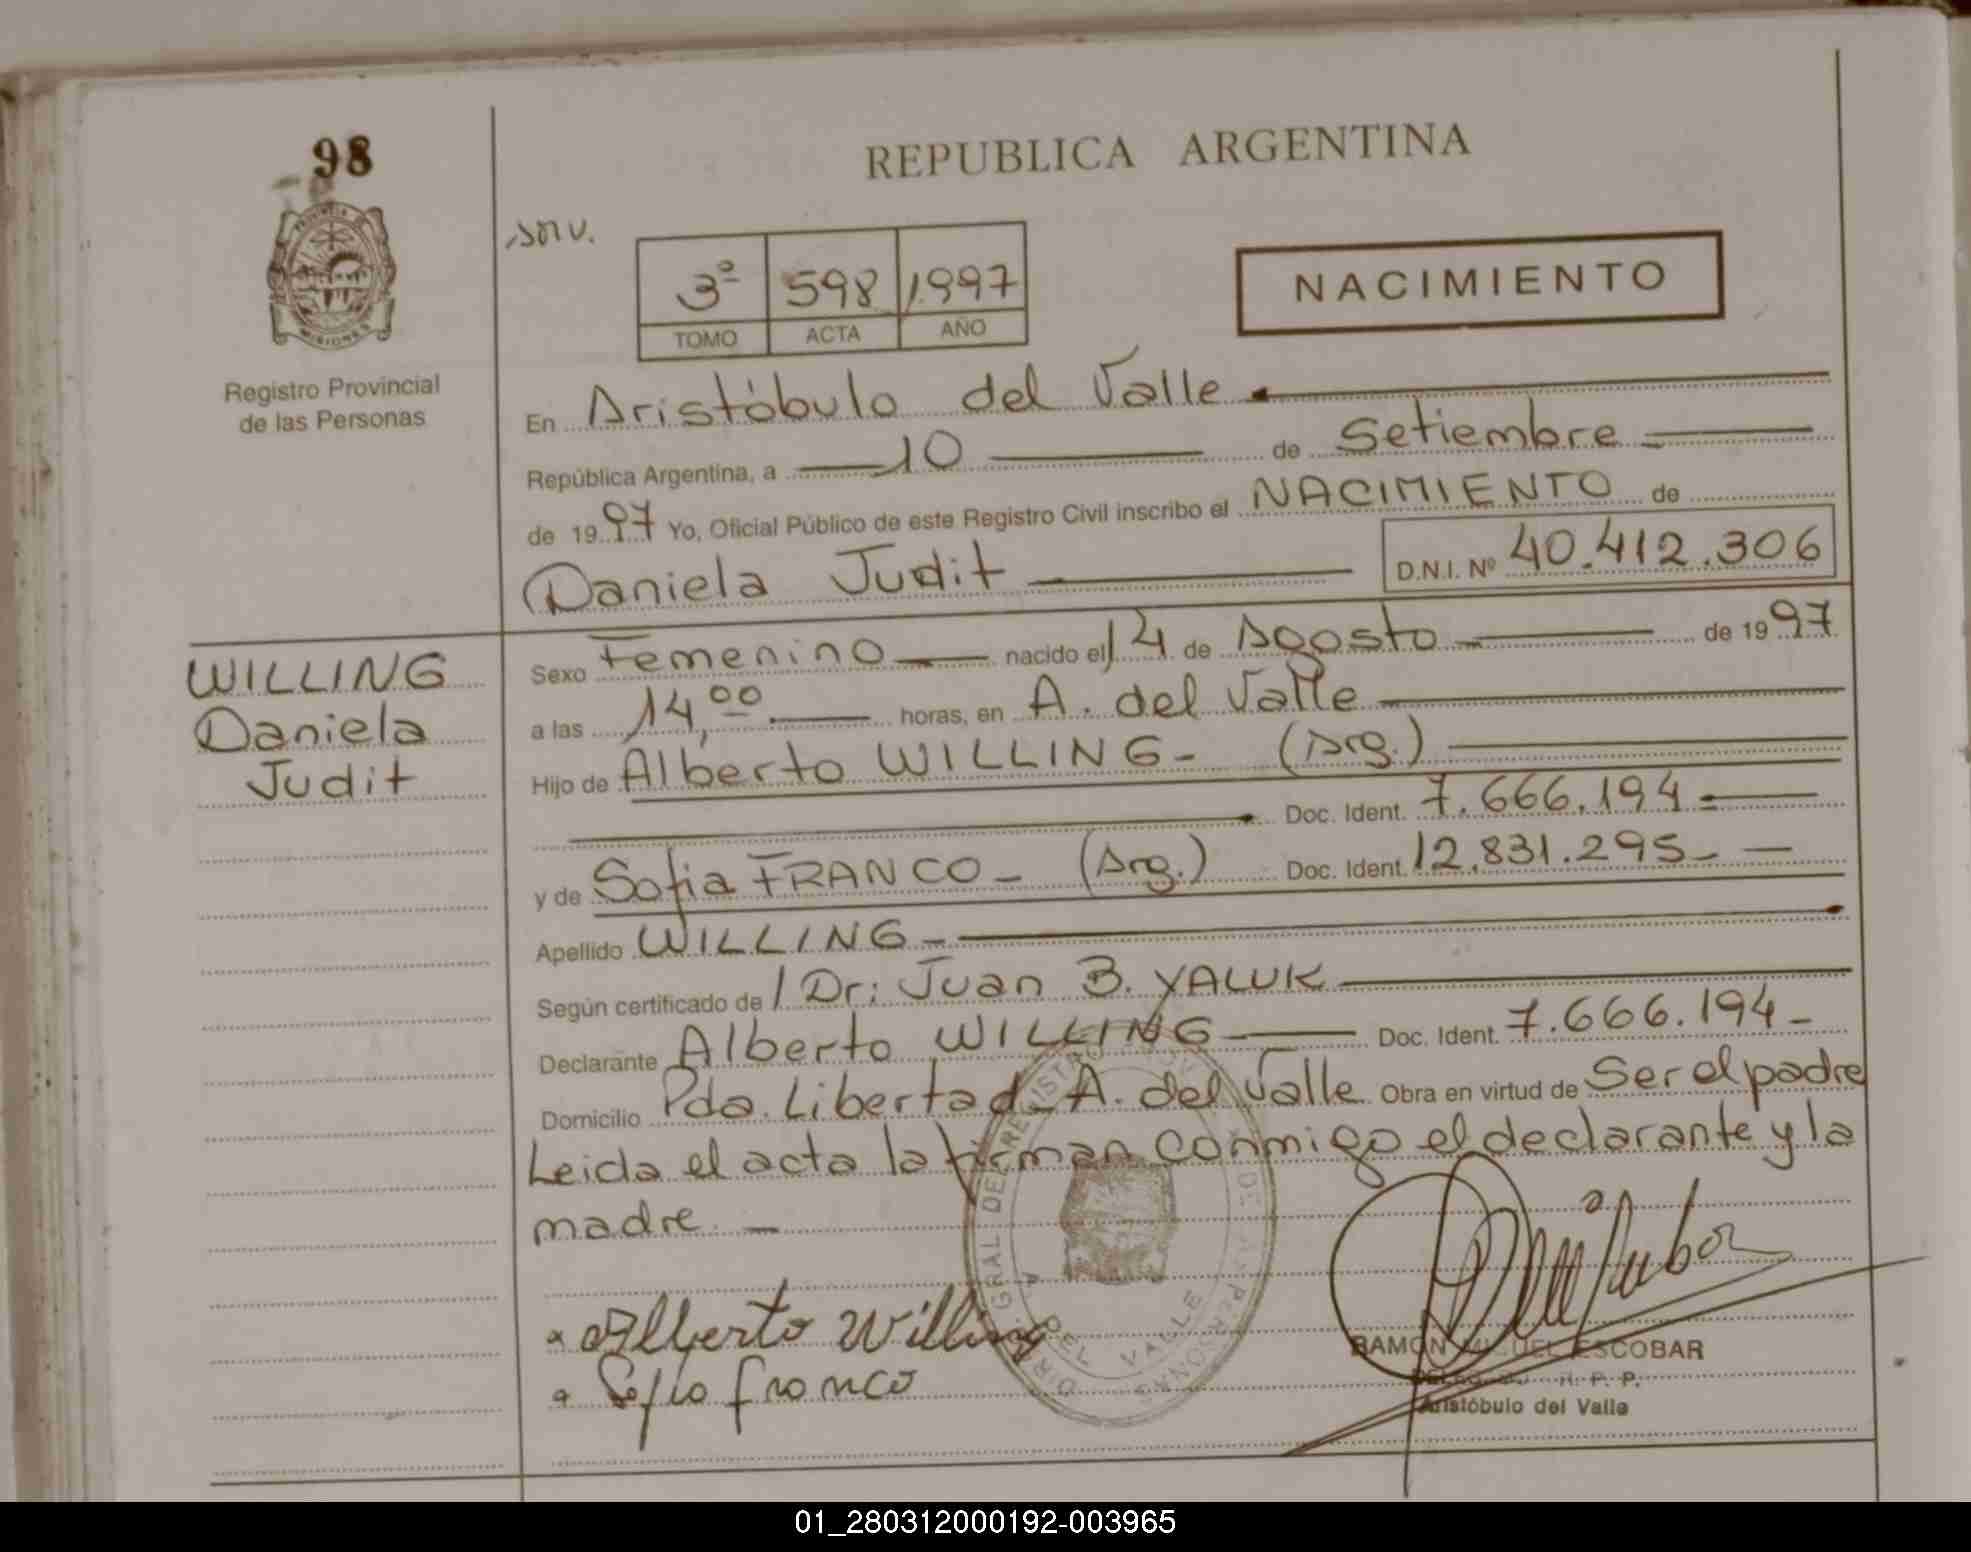 98
REPUBLICA ARGENTINA
3º 598 1997
TOMO ACTA AÑO
NACIMIENTO
PROVINCIA DE MISIONES
Registro Provincial
de las Personas
En Aristóbulo del Valle
República Argentina, a 10 de Setiembre
de 1997 Yo, Oficial Público de este Registro Civil inscribo el NACIMIENTO de
Daniela Judit D.N.I. Nº 40.412.306
WILLING
Daniela
Judit
Sexo Femenino nacido el 14 de Agosto de 1997
a las 14,00 horas, en A. del Valle
Hijo de Alberto WILLING - (Arg.)
Doc. Ident. 7.666.194
y de Sofia FRANCO - (Arg.) Doc. Ident. 12.831.295 -
Apellido WILLING -
Según certificado de Dr: Juan B. YALUK
Declarante Alberto WILLING Doc. Ident. 7.666.194 -
Domicilio Pda. Libertad - A. del Valle Obra en virtud de Ser el padre
Leida el acta la firman conmigo el declarante y la
madre. -
Alberto Willing
Sofia franco
DIR. GRAL DEL REGISTRO PERSONAS
A. DEL VALLE
RAMON MIGUEL ESCOBAR
R. P. P.
Aristóbulo del Valle
01_280312000192-003965